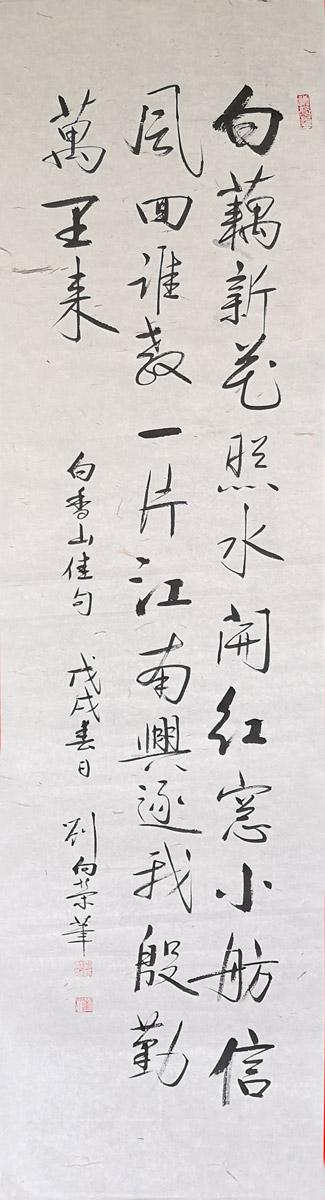 白藕新花照水開紅窓小舫信
風回誰教一片江南興逐我殷勤
萬里来
白香山佳句 戊戌春日 劉向榮筆